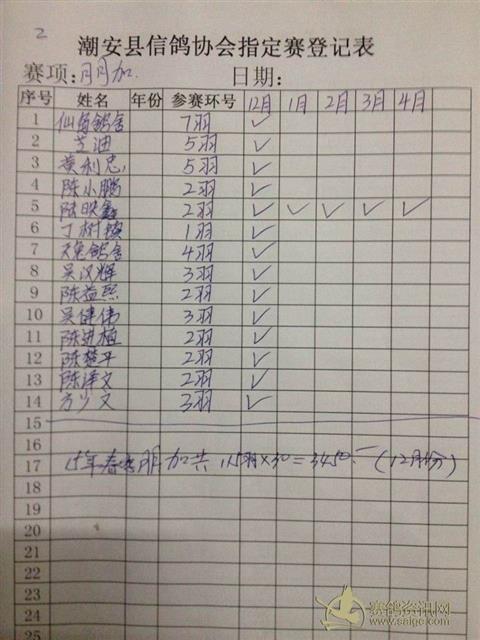 2
潮安县信鸽协会指定赛登记表
赛项:月月加. 日期:
序号 姓名 年份 参赛环号 12月 1月 2月 3月 4月
1 仙鱼鸽舍 7羽 ✓
2 芝迪 5羽 ✓
3 黄利忠 5羽 ✓
4 陈小鹏 2羽 ✓
5 陆映鑫 2羽 ✓ ✓ ✓ ✓ ✓
6 丁树 1羽 ✓
7 天 鸽舍 4羽 ✓
8 吴汉辉 3羽 ✓
9 陈益熙 2羽 ✓
10 吴健伟 3羽 ✓
11 陈进植 2羽 ✓
12 陈楚平 2羽 ✓
13 陈泽文 2羽 ✓
14 方少文 3羽 ✓
15
16
17 15年春季 加共 115羽×30=3450.一(12月份)
18
19
20
21
22
23
24
25
赛鸽资讯网
www.saige.com